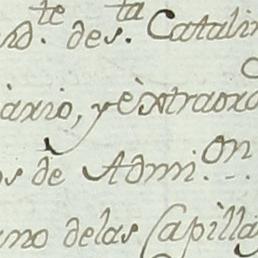 nd.te de s.ta Catalin
ario, y èxtraord
os de Admi.on
ano de las Capilla